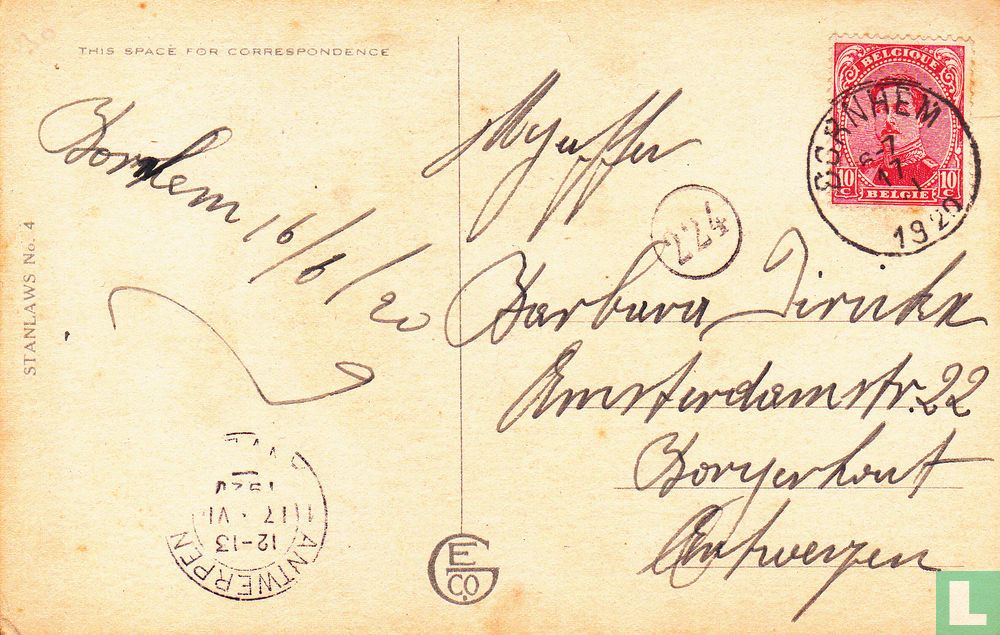 THIS SPACE FOR CORRESPONDENCE
Bornhem 16/6/20
STANLAWS No. 4
ANTWERPEN
12-13
17 · VI
1920
E G CO.
BELGIQUE
10 C
10 C
BELGIE
BORNHEM
6-7
17
1920
Mejuffer
4727
Barbara Dirickx
Amsterdamstr. 22
Borgerhout
Antwerpen
L